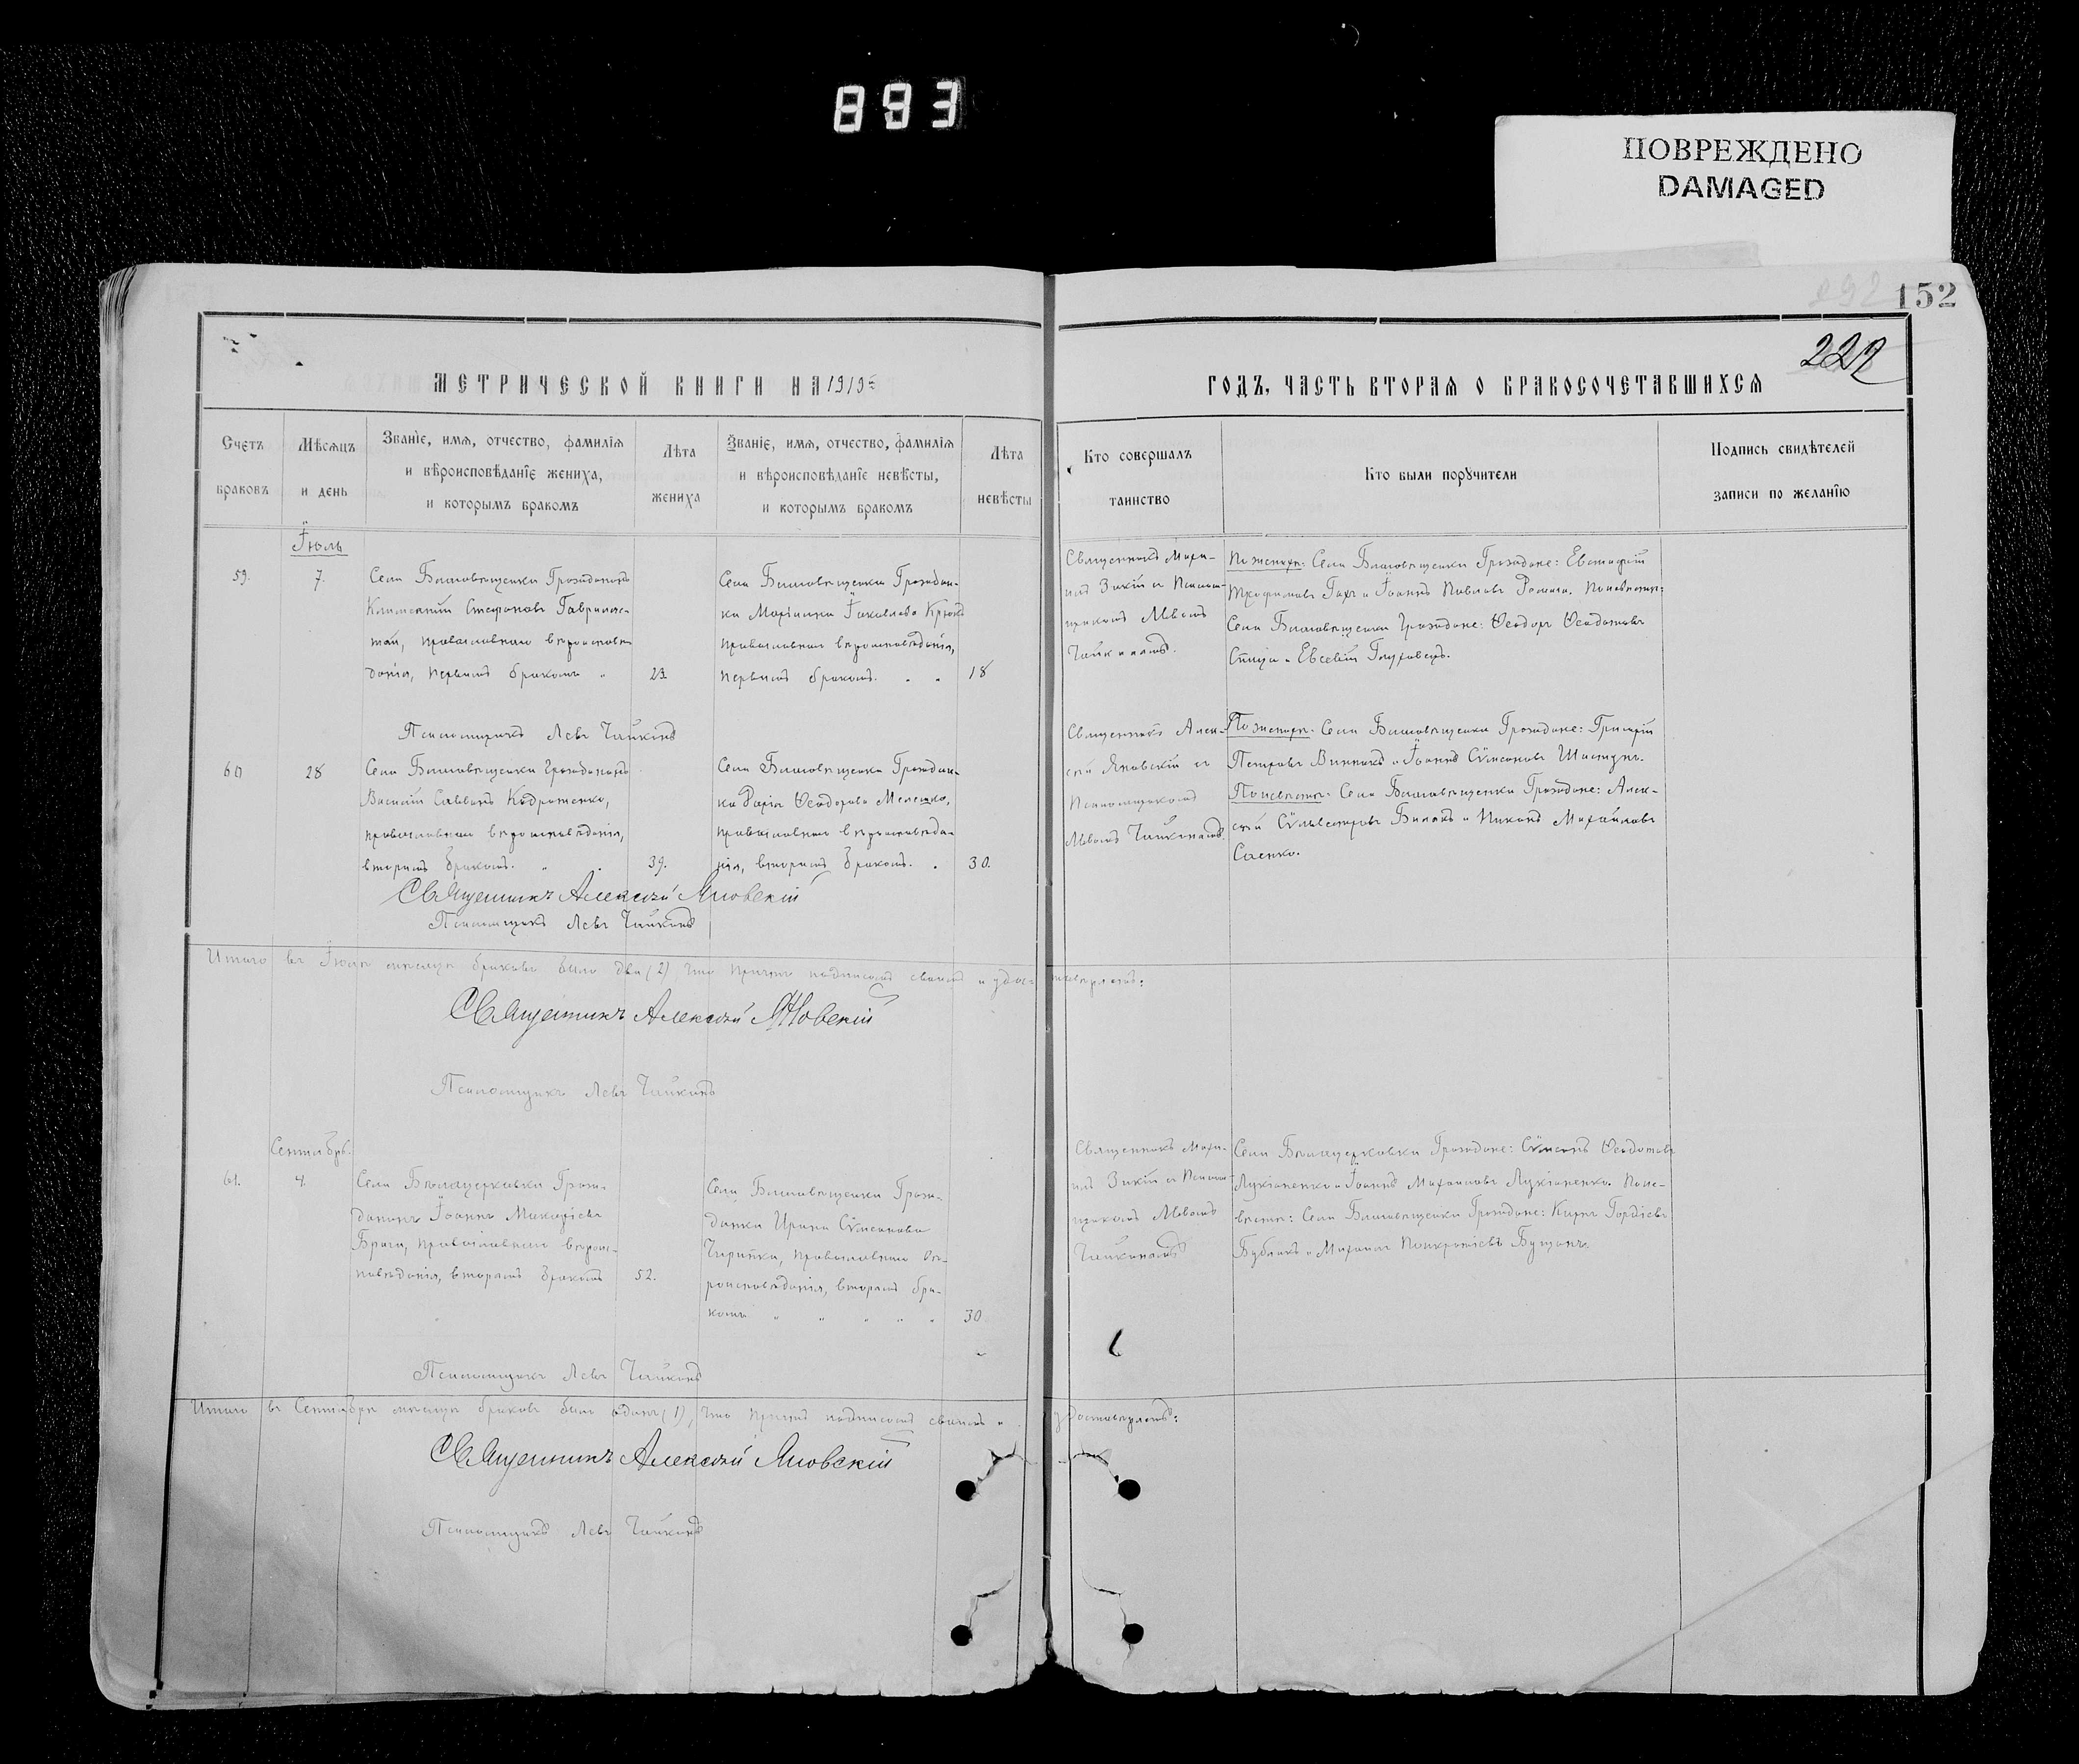 893
ПОВРЕЖДЕНО
DAMAGED
152
222
МЕТРИЧЕСКОЙ КНИГИ НА 1919 г.
ГОДЪ, ЧАСТЬ ВТОРАЯ О БРАКОСОЧЕТАВШИХСЯ
Счетъ браковъ
Мѣсяцъ и день
Званіе, имя, отчество, фамилія
и вѣроисповѣданіе жениха,
и которымъ бракомъ
Лѣта жениха
Званіе, имя, отчество, фамилія
и вѣроисповѣданіе невѣсты,
и которымъ бракомъ
Лѣта невѣсты
Кто совершалъ таинство
Кто были поручители
Подпись свидѣтелей
записи по желанію
Іюль
59.
7.
Села Благовѣщенки Гражданинъ
Климентій Стефановъ
православнаго вѣроисповѣ-
данія, первымъ бракомъ
23.
Села Благовѣщенки Граждан-
ка Іаковлева
православнаго вѣроисповѣданія,
первымъ бракомъ.
18
Священникъ
съ Псалом-
щикомъ Львомъ
Чайкинымъ.
По женихѣ: Села Благовѣщенки Граждане: Евстафій
Трофимовъ и Іоаннъ Павловъ По невѣстѣ:
Села Благовѣщенки Граждане: Ѳеодоръ Ѳеодотовъ
Спица и Евсевій Глуховецъ.
Псаломщикъ Левъ Чайкинъ
60
28
Села Благовѣщенки Гражданинъ
Василій Саввинъ
православнаго вѣроисповѣданія,
вторымъ бракомъ.
39.
Села Благовѣщенки Граждан-
ка Дарія Ѳеодорова Мелешко,
православнаго вѣроисповѣда-
нія, вторымъ бракомъ.
30.
Священникъ Алек-
сѣй Яновскій съ
Псаломщикомъ
Львомъ Чайкинымъ.
По женихѣ: Села Благовѣщенки Граждане: Григорій
Петровъ Винникъ и Іоаннъ Сѵмеоновъ
По невѣстѣ: Села Благовѣщенки Граждане: Алек-
сѣй Сѵльвестровъ Билакъ и Никонъ Михайловъ
Саенко.
Священникъ Алексѣй Яновскій
Псаломщикъ Левъ Чайкинъ
Итого въ Іюлѣ мѣсяцѣ браковъ было два (2) что причтъ подписомъ своимъ и удостовѣряетъ:
Священникъ Алексѣй Яновскій
Псаломщикъ Левъ Чайкинъ
Сентябрь
61.
4.
Села Бѣлацерковки Граж-
данинъ Іоаннъ Макаріевъ
Брага, православнаго вѣроис-
повѣданія, вторымъ бракомъ
52.
Села Благовѣщенки Граж-
данка Ирина Сѵмеонова
православнаго вѣ-
роисповѣданія, вторымъ бра-
комъ
30
Священникъ
съ Псалом-
щикомъ Львомъ
Чайкинымъ
Села Бѣлацерковки Граждане: Сѵмеонъ Ѳеодотовъ
Лукіаненко и Іоаннъ Михаиловъ Лукіаненко. По не-
вѣстѣ: Села Благовѣщенки Граждане: Киръ Гордіевъ
Бубликъ и Михаилъ Панкратіевъ
Псаломщикъ Левъ Чайкинъ
Итого въ Сентябрѣ мѣсяцѣ браковъ было одинъ (1), что причтъ подписомъ своимъ и удостовѣряетъ:
Священникъ Алексѣй Яновскій
Псаломщикъ Левъ Чайкинъ